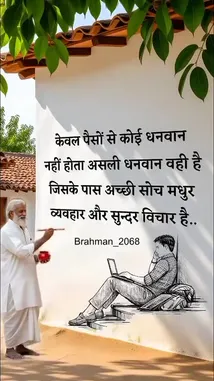 केवल पैसों से कोई धनवान
नहीं होता असली धनवान वही है
जिसके पास अच्छी सोच मधुर
व्यवहार और सुन्दर विचार है..
Brahman_2068